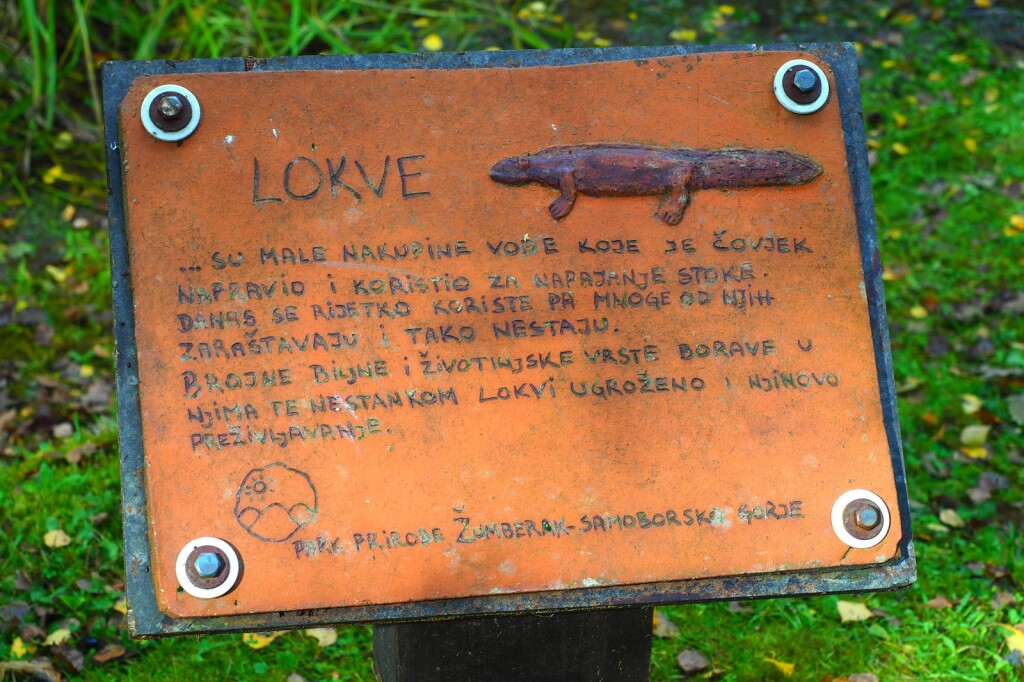 LOKVE
... SU MALE NAKUPINE VODE KOJE JE ČOVJEK
NAPRAVIO I KORISTIO ZA NAPAJANJE STOKE.
DANAS SE RIJETKO KORISTE PA MNOGE OD NJIH
ZARAŠTAVAJU I TAKO NESTAJU.
BROJNE BILJNE I ŽIVOTINJSKE VRSTE BORAVE U
NJIMA TE NESTANKOM LOKVI UGROŽENO I NJINOVO
PREŽIVLJAVANJE.
PARK PRIRODE ŽUMBERAK-SAMOBORSKO GORJE